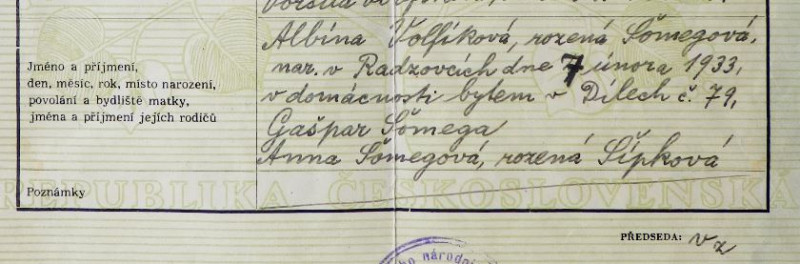 Albína Volfíková, rozená Šömegová,
Jméno a příjmení,
nar. v Radzovcích dne 7 února 1933,
den, měsíc, rok, místo narození,
povolání a bydliště matky,
v domácnosti bytem v Dílech č. 79,
jména a příjmení jejích rodičů
Gašpar Šömega
Anna Šömegová, rozená Šípková
REPUBLIKA ČESKOSLOVENSKÁ
Poznámky
PŘEDSEDA: vz
národní